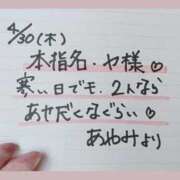 4/30(木)
本指名・ヤ様♡
寒い日でも、2人なら
あせだくなぐらい♡
あやみより